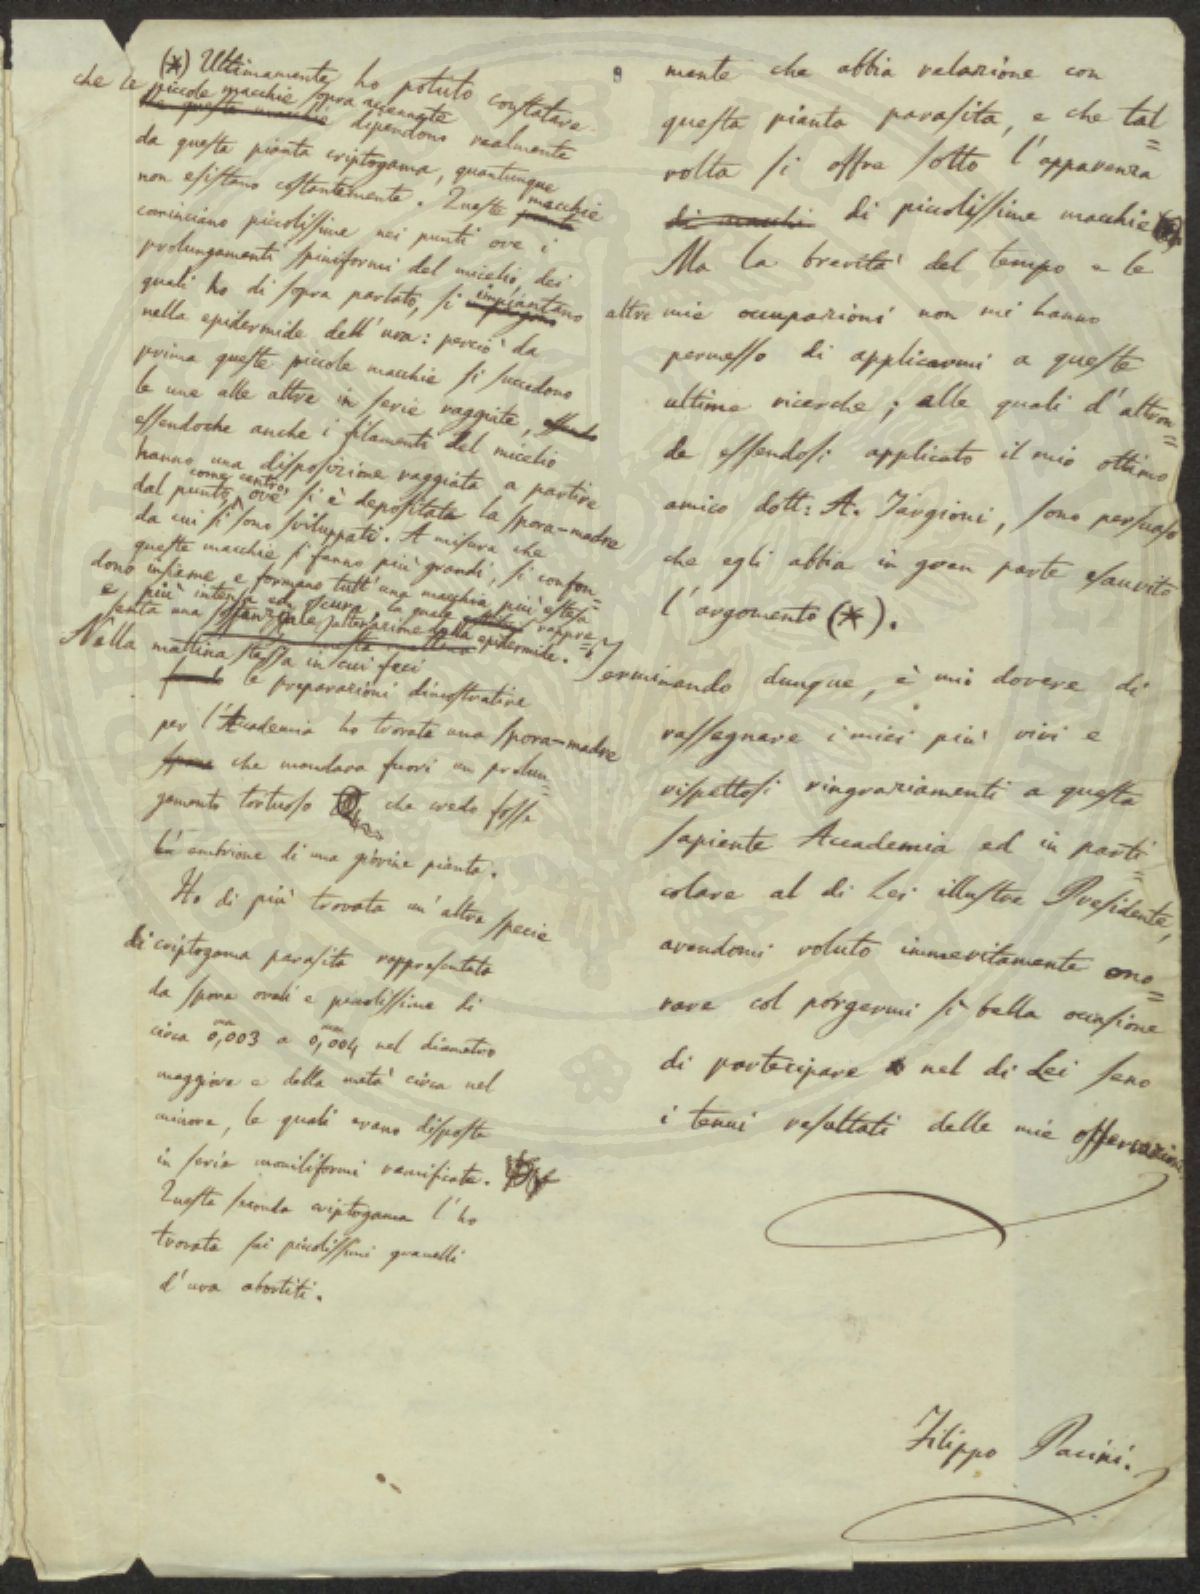 (*) Ultimamente ho potuto constatare
che le piccole macchie sopra accennate
che queste macchie dipendono realmente
da questa pianta criptogama, quantunque
non esistano costantemente. Queste macchie
cominciano piccolissime nei punti ove i
prolungamenti spiniformi del micelio, dei
quali ho di sopra parlato, si impiantano
nella epidermide dell'uva: perciò da
prima queste piccole macchie si succedono
le une alle altre in serie raggiate, essendo
essendoche anche i filamenti del micelio
hanno una disposizione raggiata a partire
come centro,
dal punto, ove si è depositata la spora-madre
da cui si sono sviluppati. A misura che
queste macchie si fanno più grandi, si confon=
dono insieme e formano tutt'una macchia più estesa
e più intensa ed oscura, la quale rappre=
senta una sostanziale alterazione della epidermide.
Nella mattina stessa in cui feci
le preparazioni dimostrative
per l'Accademia ho trovata una spora-madre
spora che mandava fuori un prolun=
gamento tortuoso che credo fosse
L' embrione di una giovine pianta.
Ho di più trovata un'altra specie
di criptogama parasita rappresentata
da spore ovali e piccolissime di
circa 0,003 a 0,004 nel diametro
maggiore e della metà circa nel
minore, le quali erano disposte
in serie moniliformi ramificate.
Questa seconda criptogama l'ho
trovata sui piccolissimi granelli
d'uva abortiti.
mente che abbia relazione con
questa pianta parasita, e che tal=
volta si offre sotto l'apparenza
di macchi di piccolissime macchie
Ma la brevità del tempo e le
altre mie occupazioni non mi hanno
permesso di applicarmi a queste
ultime ricerche; alle quali d'altron=
de essendosi applicato il mio ottimo
amico dott: A. Targioni, sono persuaso
che egli abbia in gran parte esaurito
l'argomento (*).
Terminando dunque, è mio dovere di
rassegnare i miei più vivi e
rispettosi ringraziamenti a questa
sapiente Accademia ed in parti=
colare al di Lei illustre Presidente,
avendomi voluto immeritamente ono=
rare col porgermi sì bella occasione
di partecipare nel di Lei seno
i tenui resultati delle mie osservazioni
Filippo Pacini.